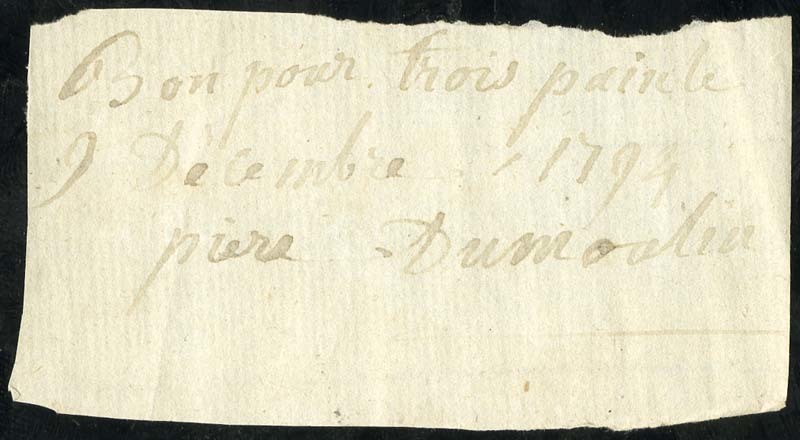 Bon pour trois pain le
9 Decembre 1794
piere Dumoulin